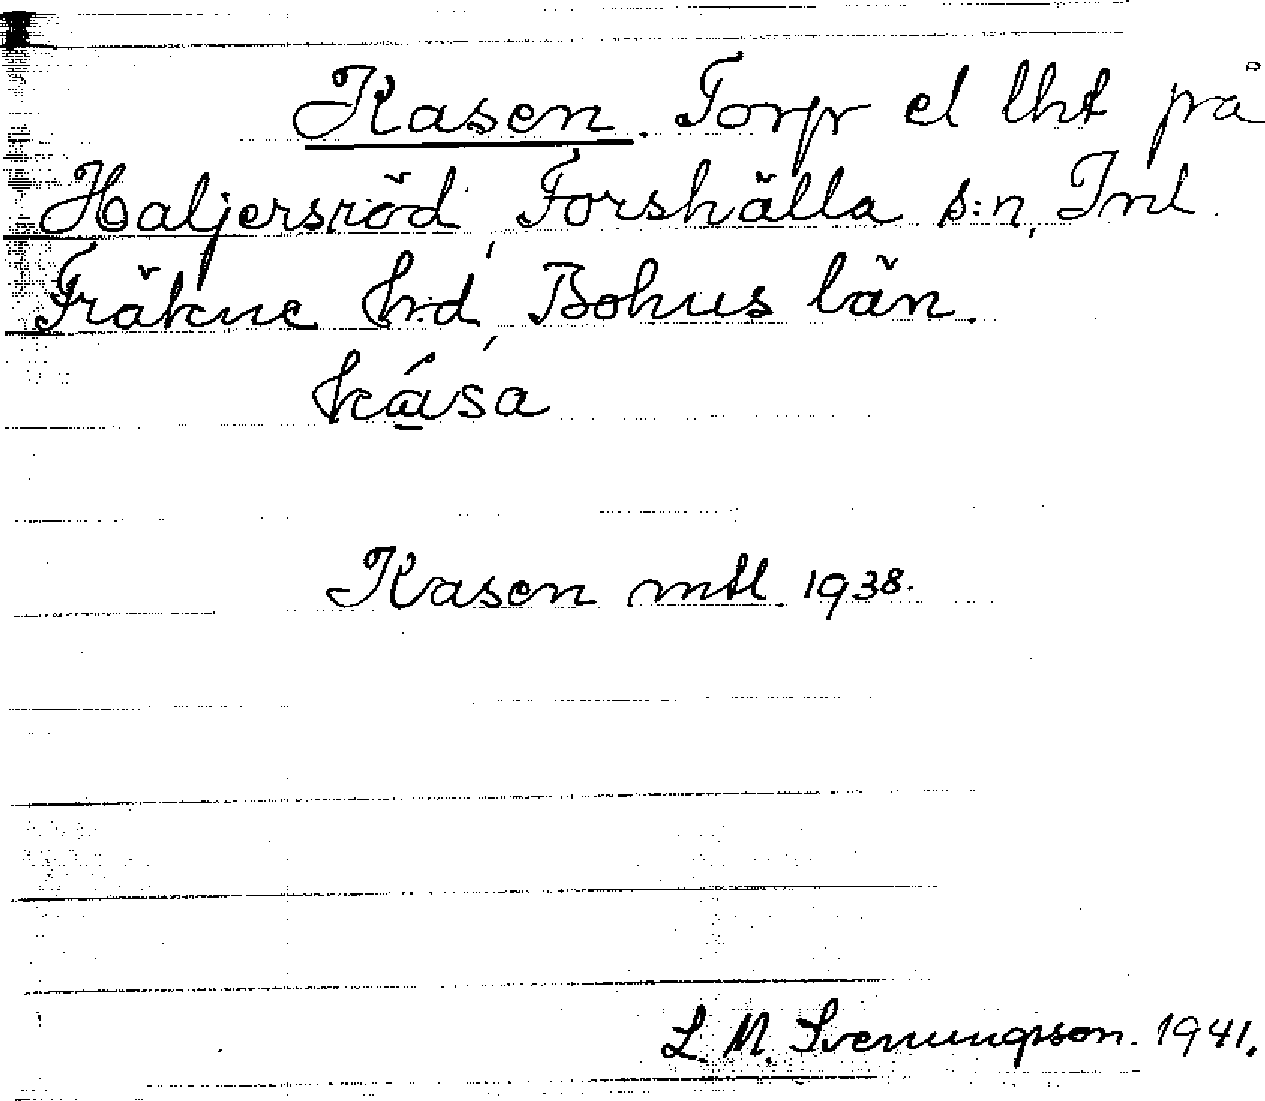 Kasen. Torp el lht på
Haljersröd, Forshälla s:n, Inl.
Fräkne hrd, Bohus län.
kása
Kasen mtl 1938.
L. M. Svenungsson. 1941.